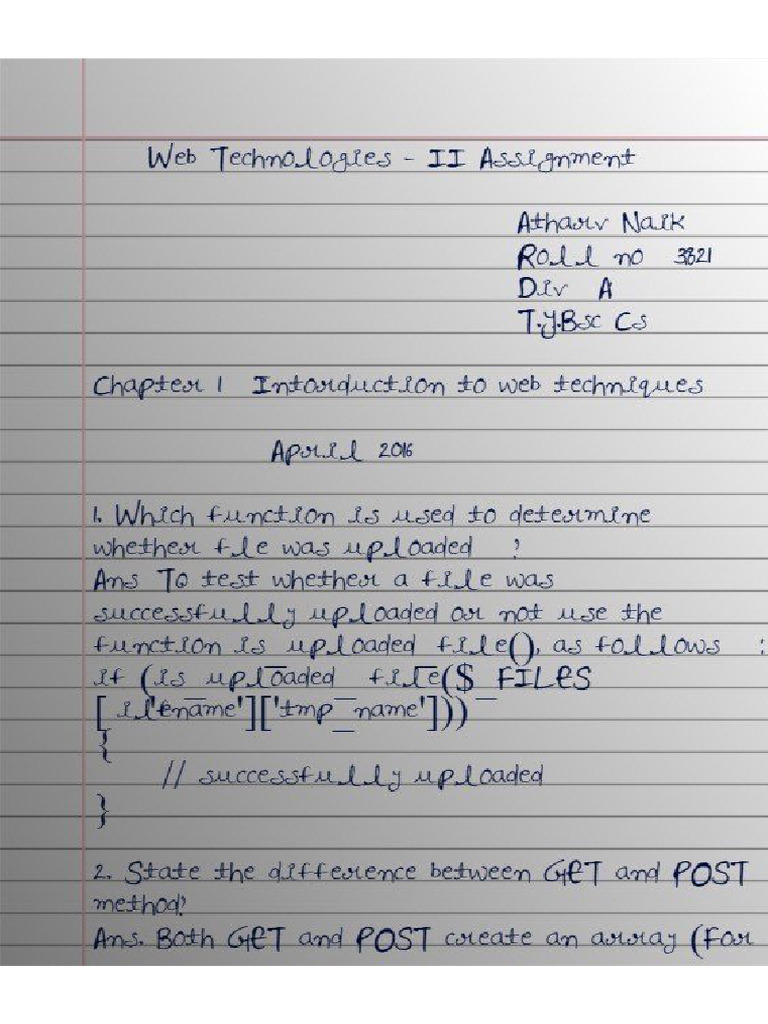 Web Technologies - II Assignment
Atharv Naik
Roll no 3821
Div A
T.Y.Bsc Cs
Chapter 1 Intorduction to web techniques
April 2016
1. Which function is used to determine
whether file was uploaded ?
Ans To test whether a file was
successfully uploaded or not use the
function is uploaded file(), as follows :
if (is uploaded file($ FILES
[ il'ename']['tmp_name']))
{
// successfully uploaded
}
2. State the difference between GET and POST
method?
Ans. Both GET and POST create an array (For